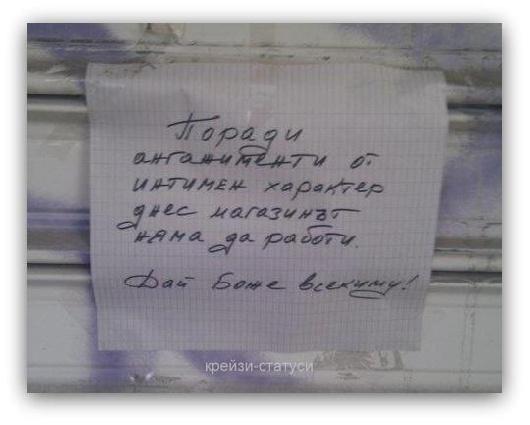 Поради
ангажименти от
интимен характер
днес магазинът
няма да работи.
Дай Боже всекиму!
крейзи-статуси